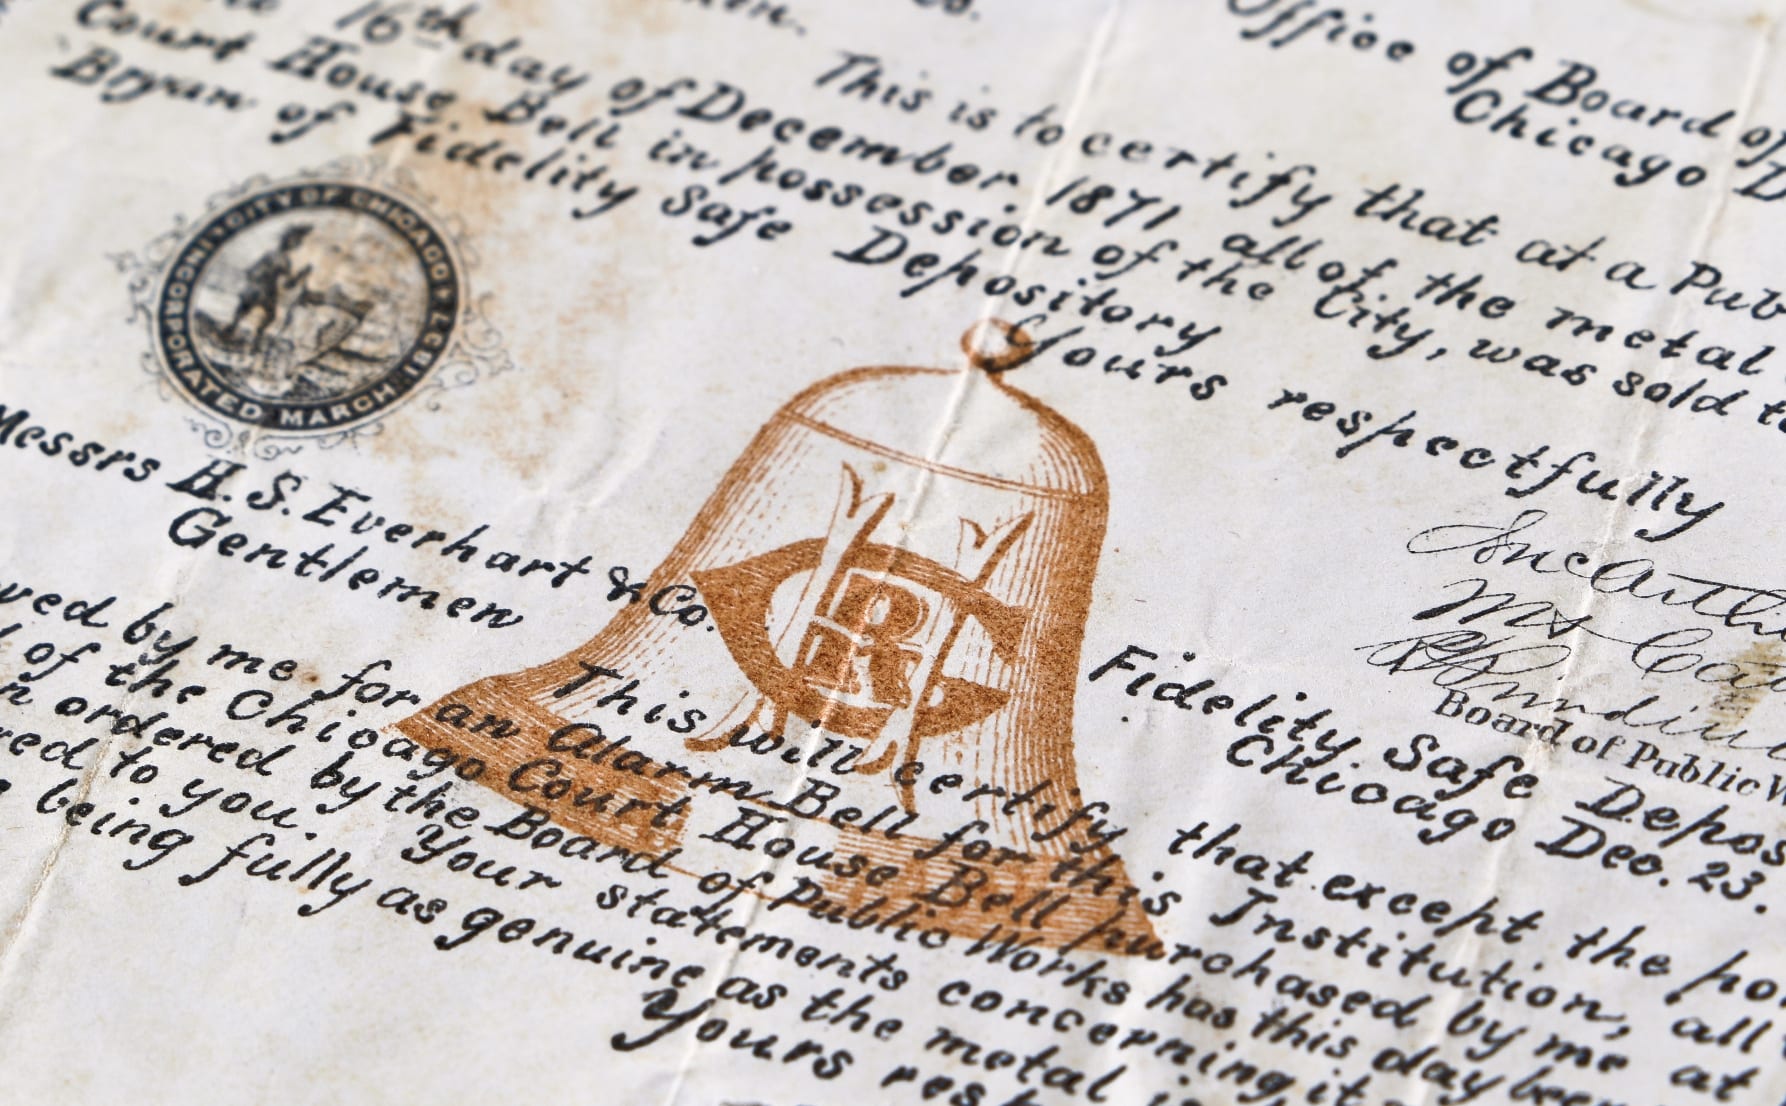 Office of Board of
Chicago D
This is to certify that at a Pub
16th day of December. 1871, all of the metal
Court House Bell in possession of the City, was sold to
Bryan of Fidelity Safe Depository
Yours respectfully
CITY OF CHICAGO
INCORPORATED MARCH
Board of Public W
Messrs H. S. Everhart & Co.
Gentlemen
Fidelity Safe Depos
Chicago Dec. 23.
This will certify that except the po
ved by me for an Alarm Bell for this Institution, all
of the Chicago Court House Bell purchased by me at
n ordered by the Board of Public Works has this day been
red to you. Your statements concerning it
being fully as genuine as the metal
Yours res